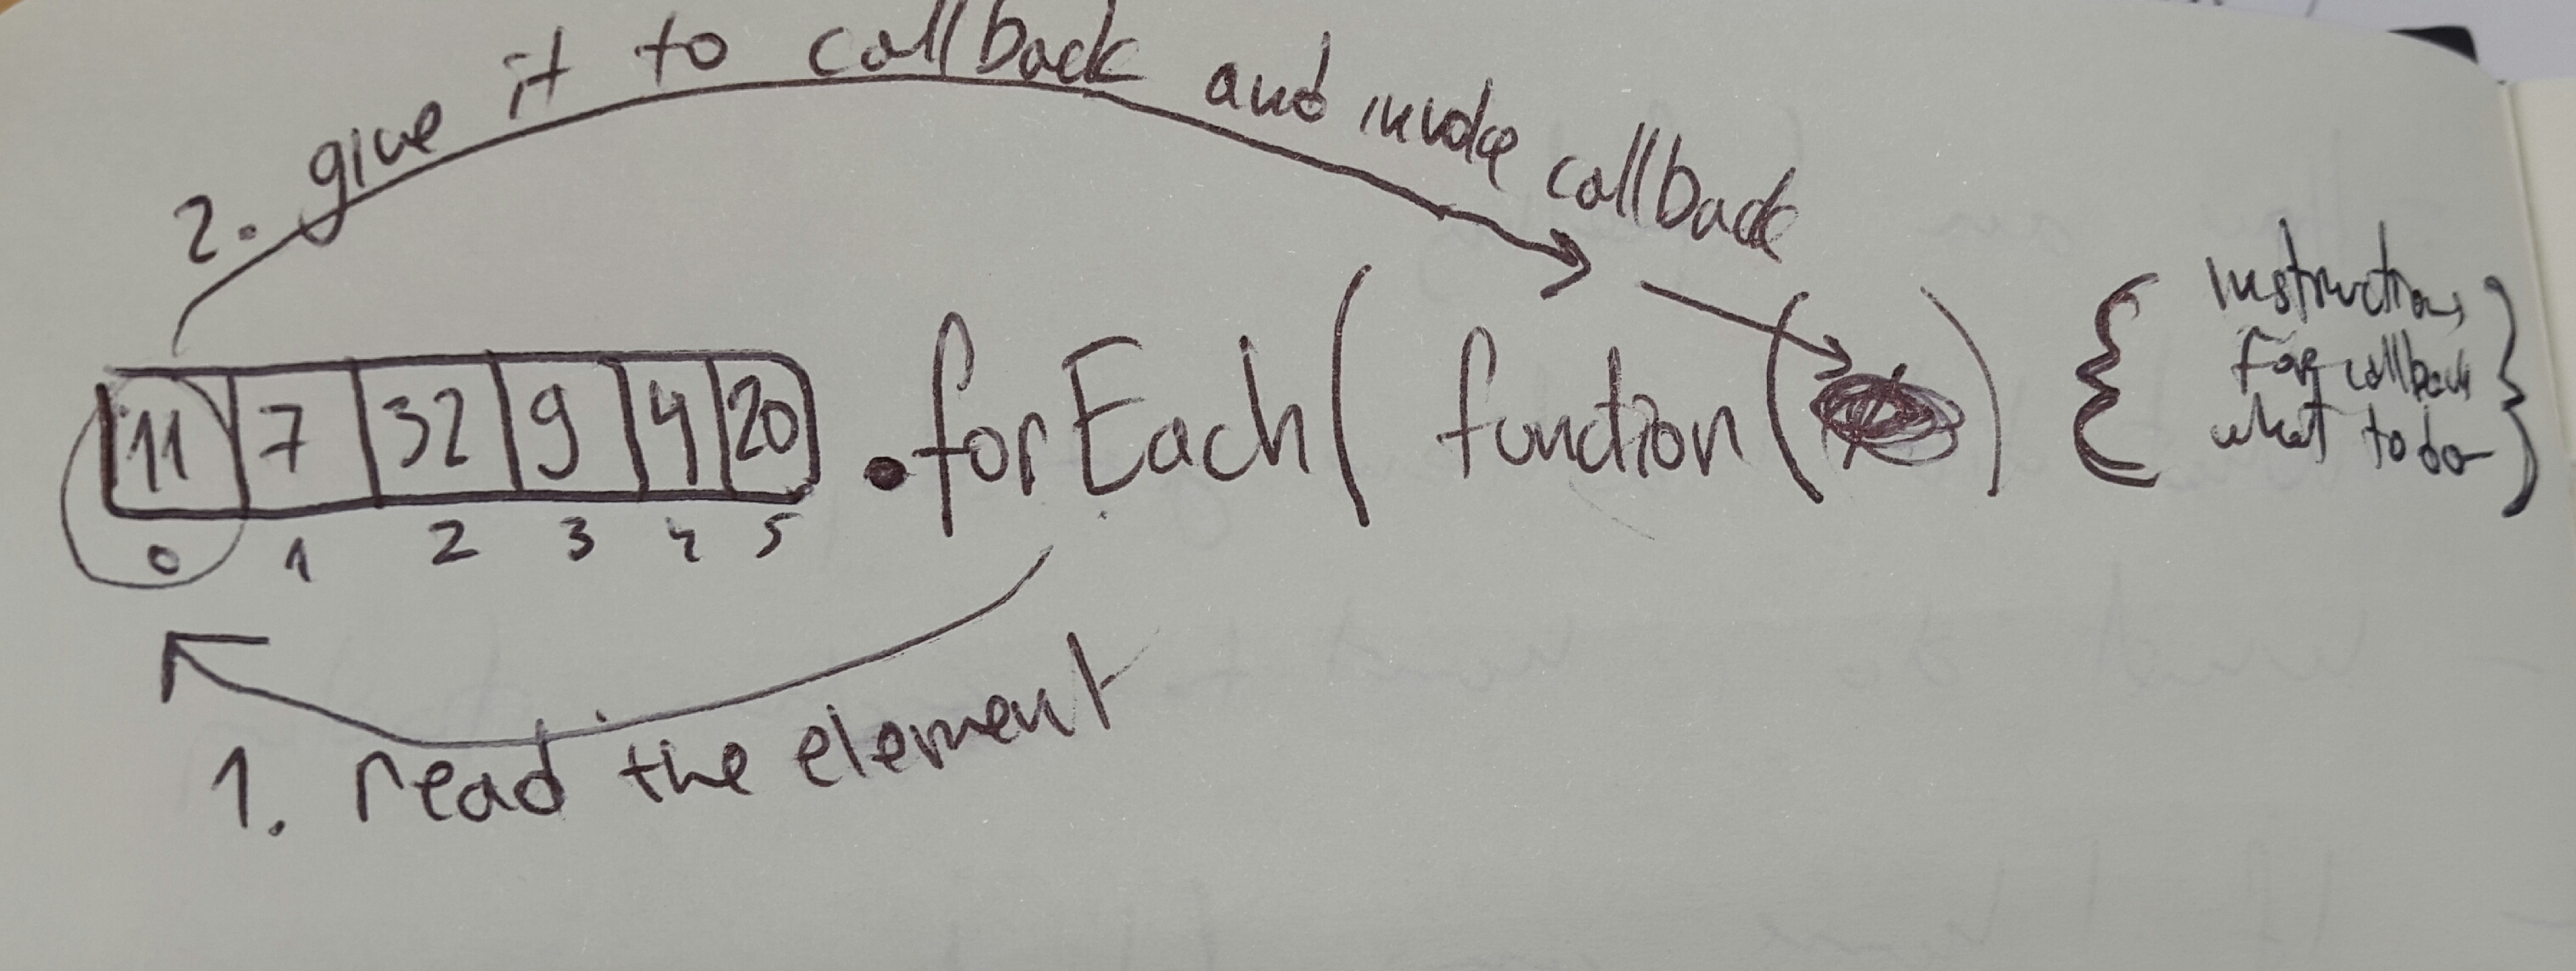 2. give it to callback and invoke callback
11 7 32 9 4 20 .forEach( function( ) { instructions for callback what to do }
0 1 2 3 4 5
1. read the element